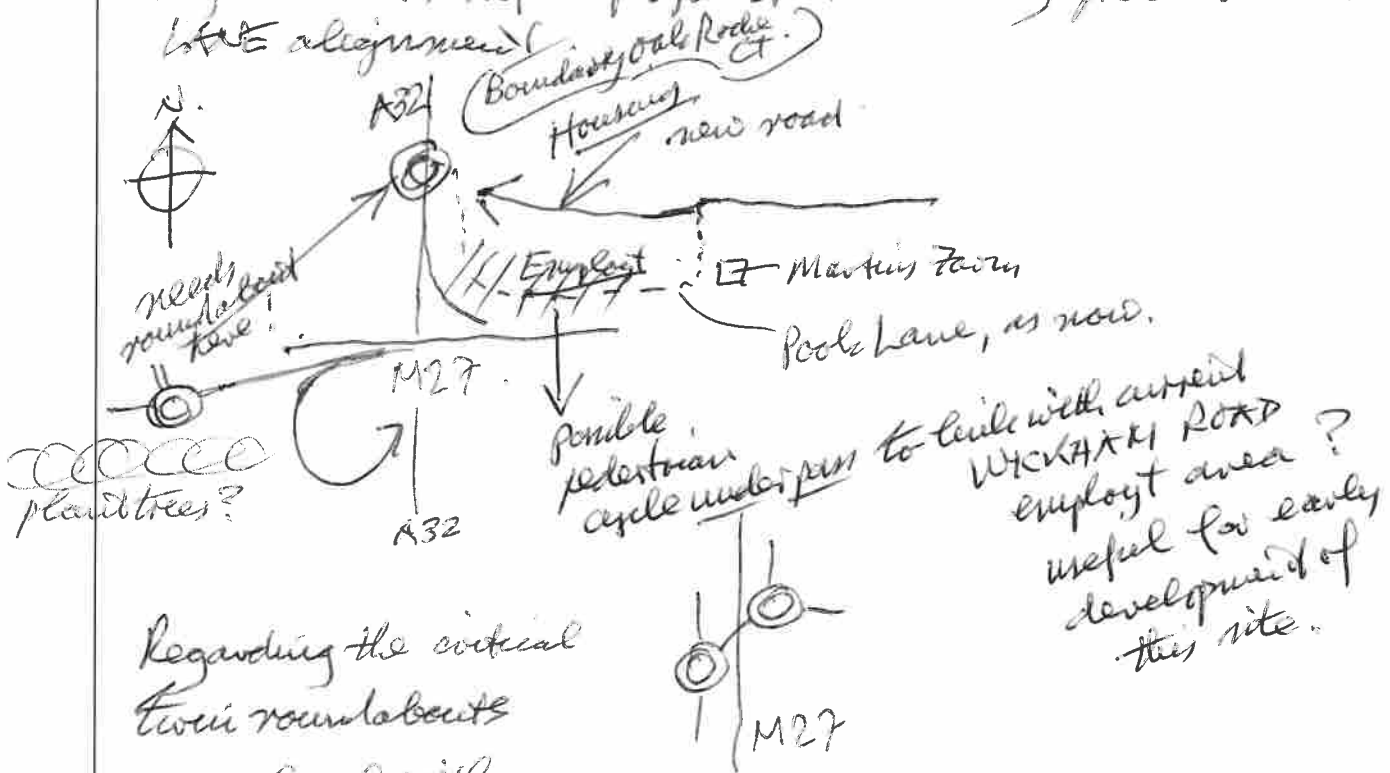 LANE alignment
N.
A32
(Boundary Oak Roche Ct.)
Housing
new road
needs
roundabout
here!
Employt
Martins Farm
Pook Lane, as now.
M27.
A32
plant trees?
Possible
pedestrian
cycle underpass to link with current
WICKHAM ROAD
employt area?
useful for early
development of
this site.
M27
Regarding the critical
twin roundabouts